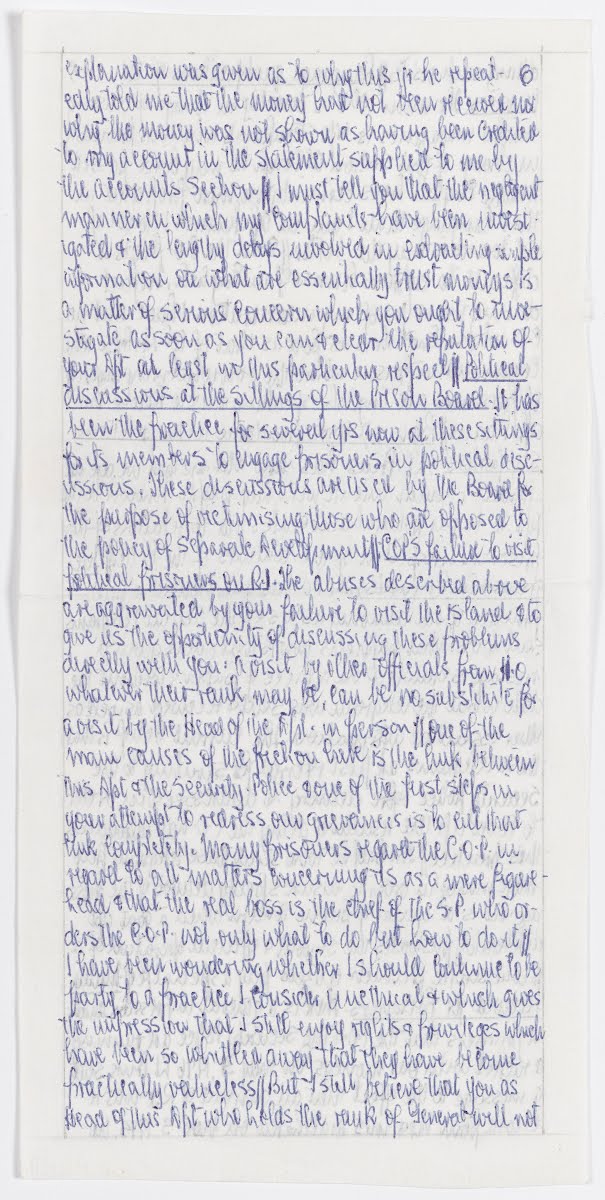 explanation was given as to why this yr he repeat- 6
edly told me that the money had not been received nor
why the money was not shown as having been credited
to my account in the statement supplied to me by
the accounts section // I must tell you that the negligent
manner in which my complaints have been invest-
igated & the lengthy delays involved in extracting simple
information on what are essentially trust moneys is
a matter of serious concern which you ought to inve-
stigate as soon as you can & clear the reputation of
your Dpt at least in this particular respect // Political
discussions at the sittings of the Prison Board. It has
been the practice for several yrs now at these sittings
for its members to engage prisoners in political disc-
ussions. These discussions are used by the Board for
the purpose of victimising those who are opposed to
the policy of Separate Development // COP's failure to visit
political prisoners on R.I. The abuses described above
are aggravated by your failure to visit the island & to
give us the opportunity of discussing these problems
directly with you: a visit by other officials from H.O,
whatever their rank may be, can be no substitute for
a visit by the Head of the Dpt. in person // One of the
main causes of the friction here is the link between
this Dpt & the Security Police & one of the first steps in
your attempt to redress our grievances is to cut that
link completely. Many prisoners regard the C.O.P. in
regard to all matters concerning us as a mere figure-
head & that the real boss is the chief of the S.P. who or-
ders the C.O.P. not only what to do but how to do it //
I have been wondering whether I should continue to be
party to a practice I consider unethical & which gives
the impression that I still enjoy rights & privileges which
have been so whittled away that they have become
practically valueless // But I still believe that you as
Head of this Dpt who holds the rank of General will not